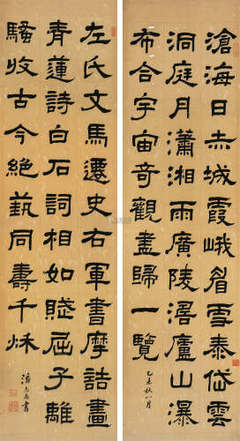 滄海日赤城霞峨眉雪泰岱雲
洞庭月瀟湘雨廣陵濤廬山瀑
布合宇宙奇觀盡歸一覽
乙未秋八月
左氏文馬遷史右軍書摩詰畫
青蓮詩白石詞相如賦屈子離
騷收古今絕蓺同壽千秌